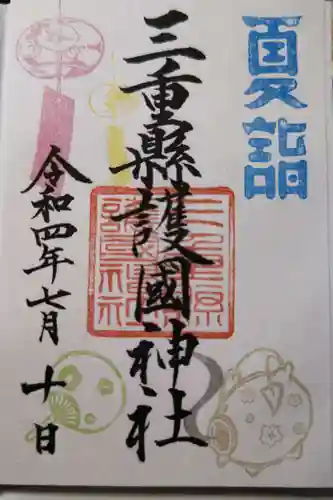 夏詣
三重縣護國神社
令和四年七月十日
三重縣護國神社